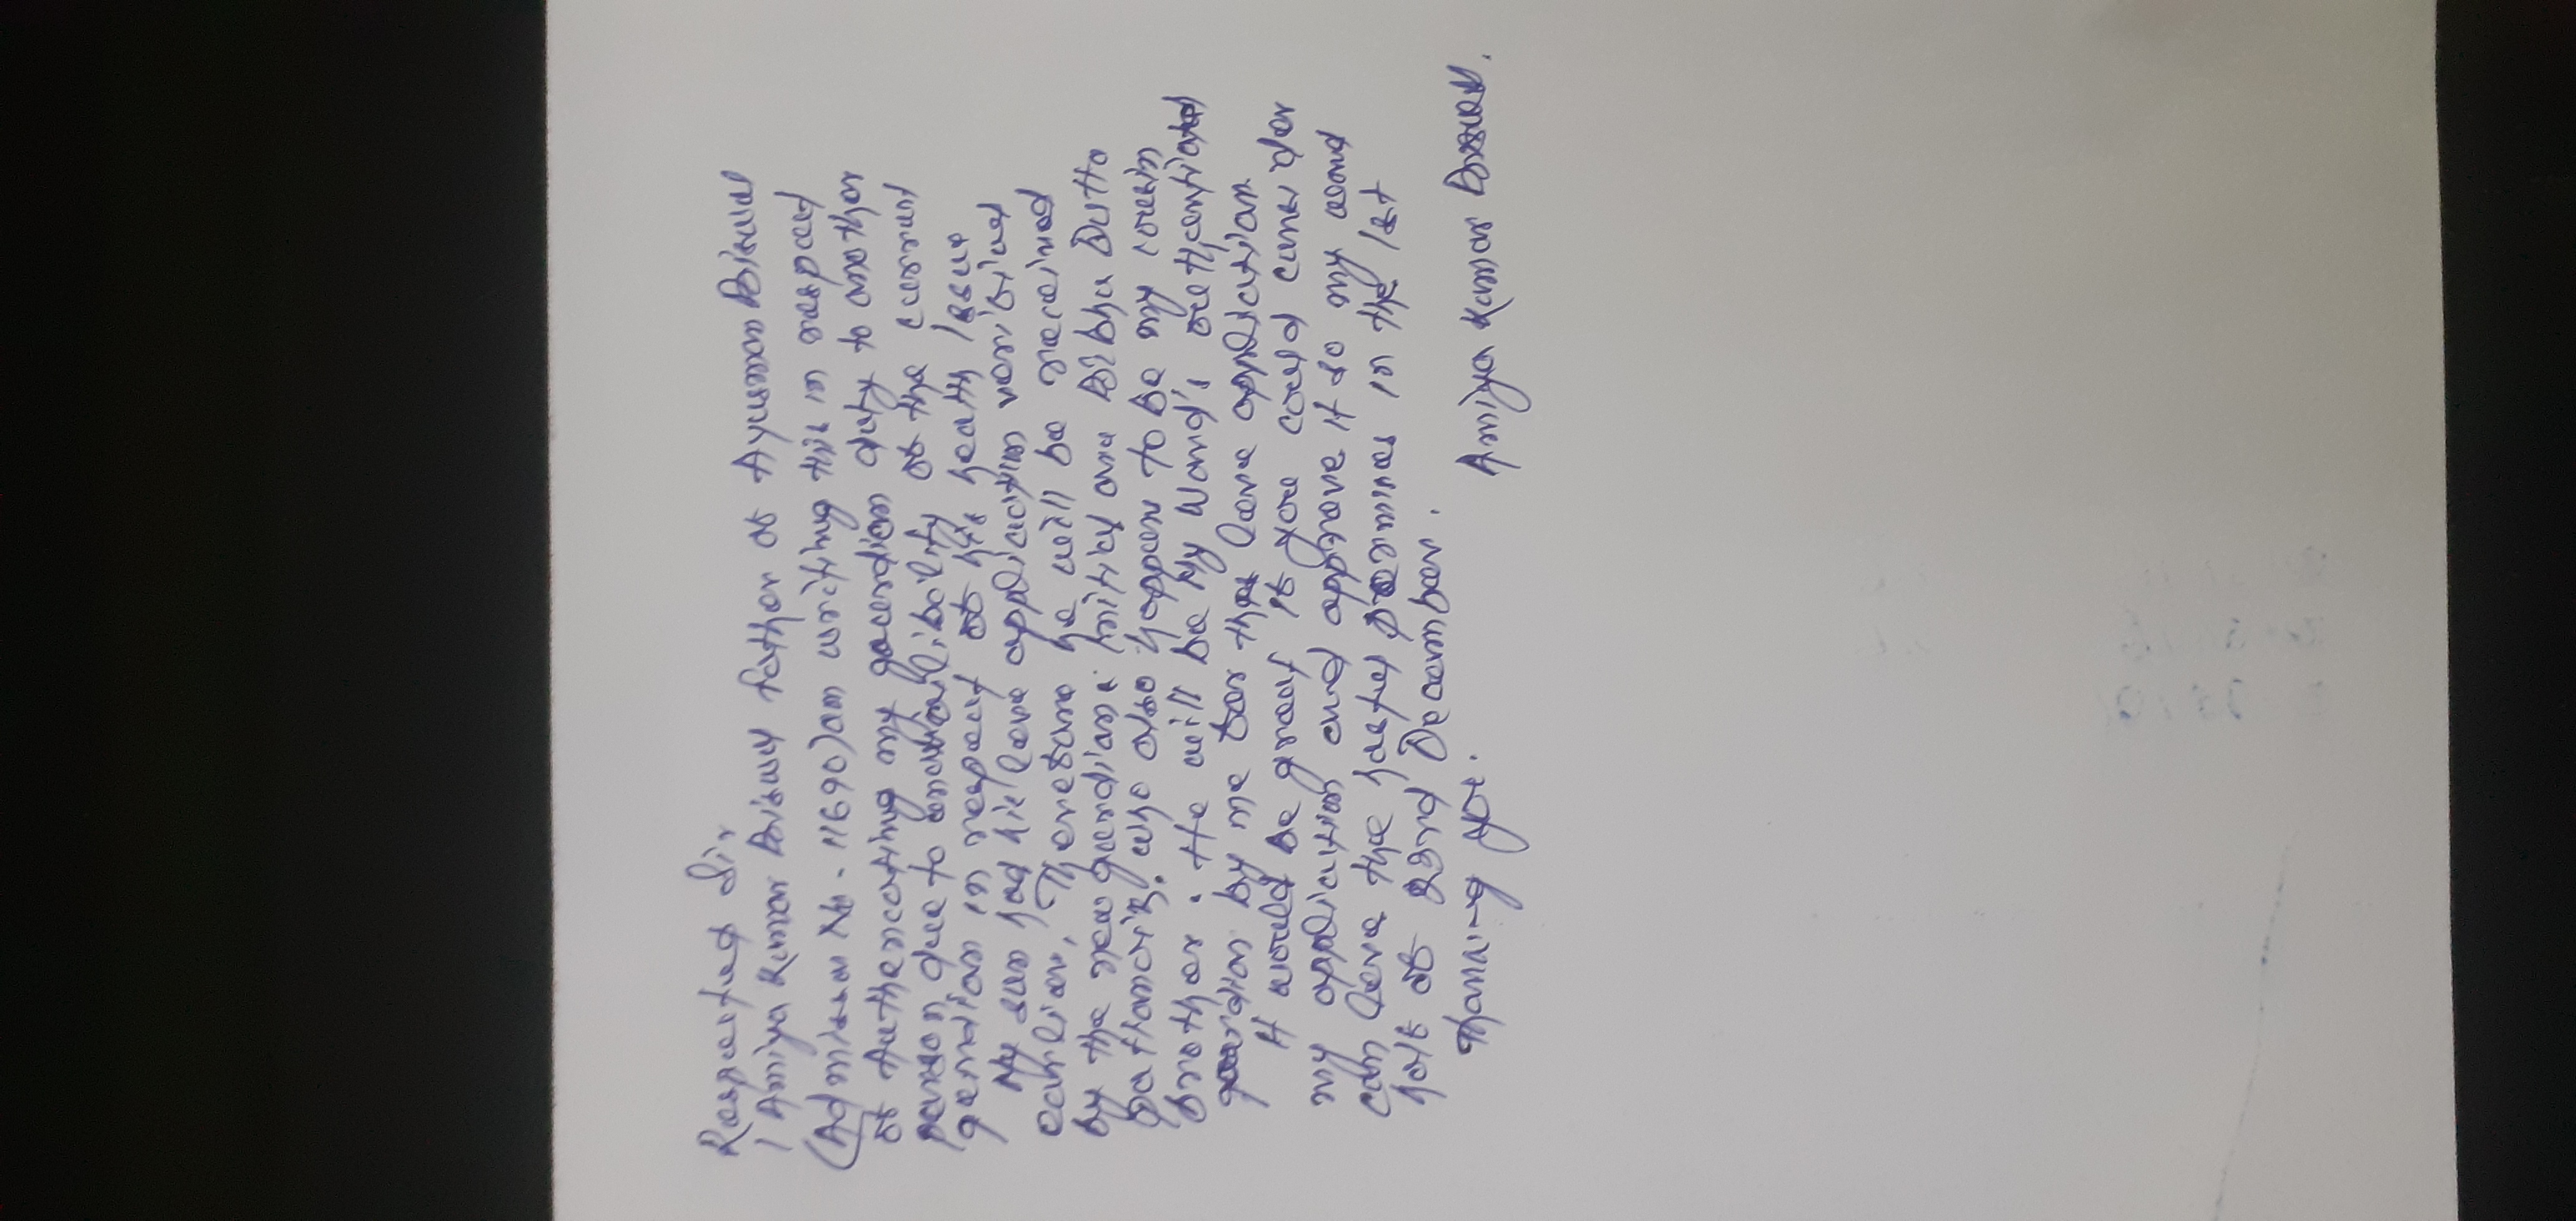 Respected Sir
I Amiya Kumar Biswas father of Ayusman Biswas
(Admission No - 11690) am writing this in respect
of Authencating my gaurdian duty to another
person due to of the current
gaurdian in respect of his heath issue
My son had his leave application verified
earlier, Therefore he will be recieved
by the new guardian: hritick Bibhu Dutta
Pattanaik, who also happen to be my cousin
brother. He will be My Ward's authenticated
guardian by me for the leave application
It would be great if you could consider
my application and approve it so my ward
can leave the hostel premises in the 1st
half of 23rd December.
Thanking you. Amiya Kumar Biswas.